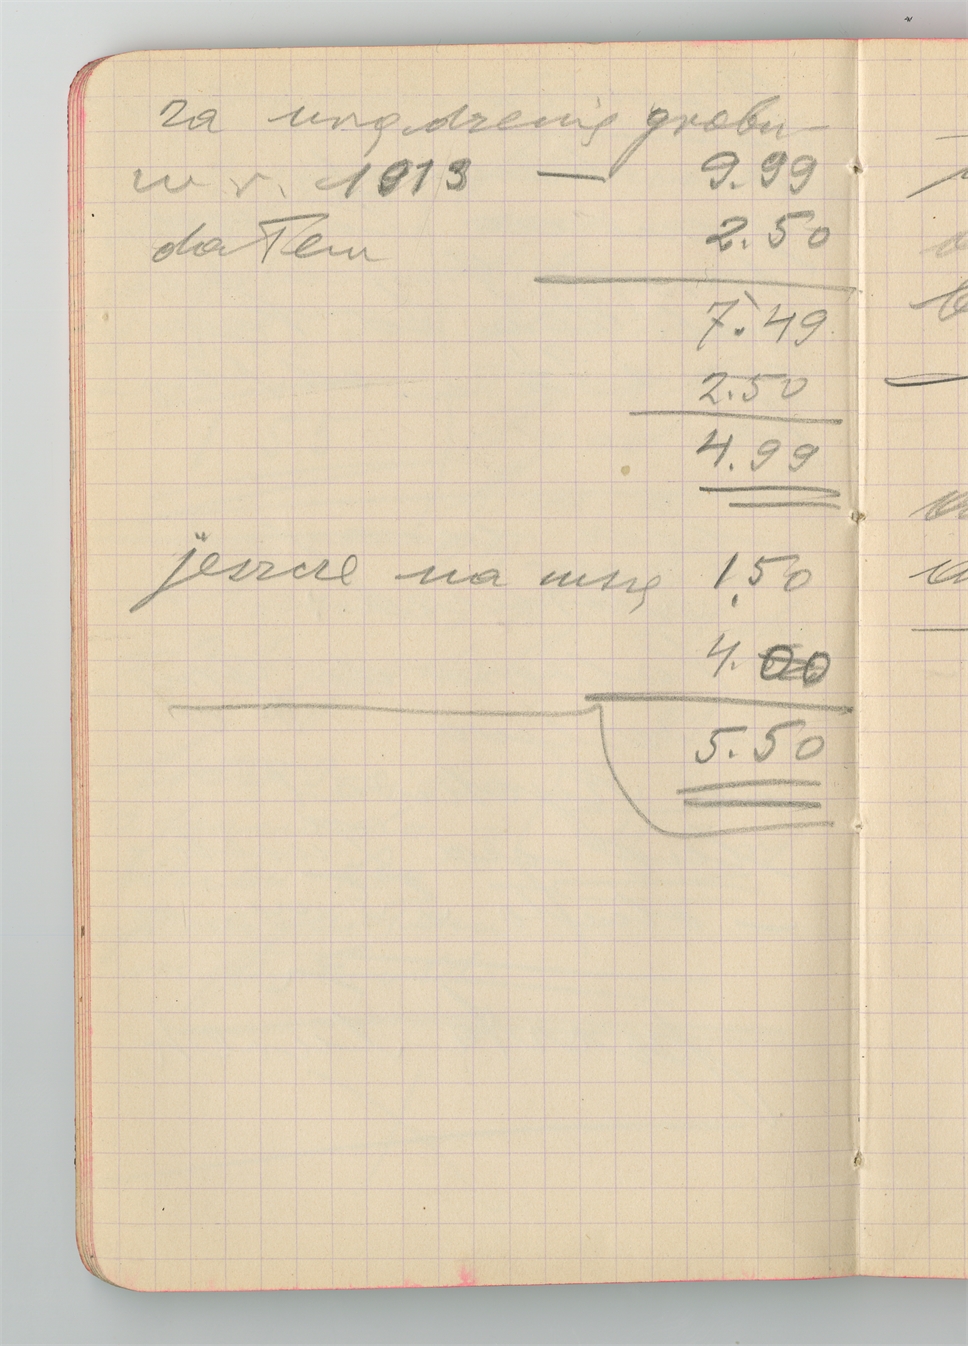 za urządzenię grobu
w r. 1913 — 9.99
dałem 2.50
7.49
2.50
4.99
jeszcze na mszę 1,50
4.00
5.50